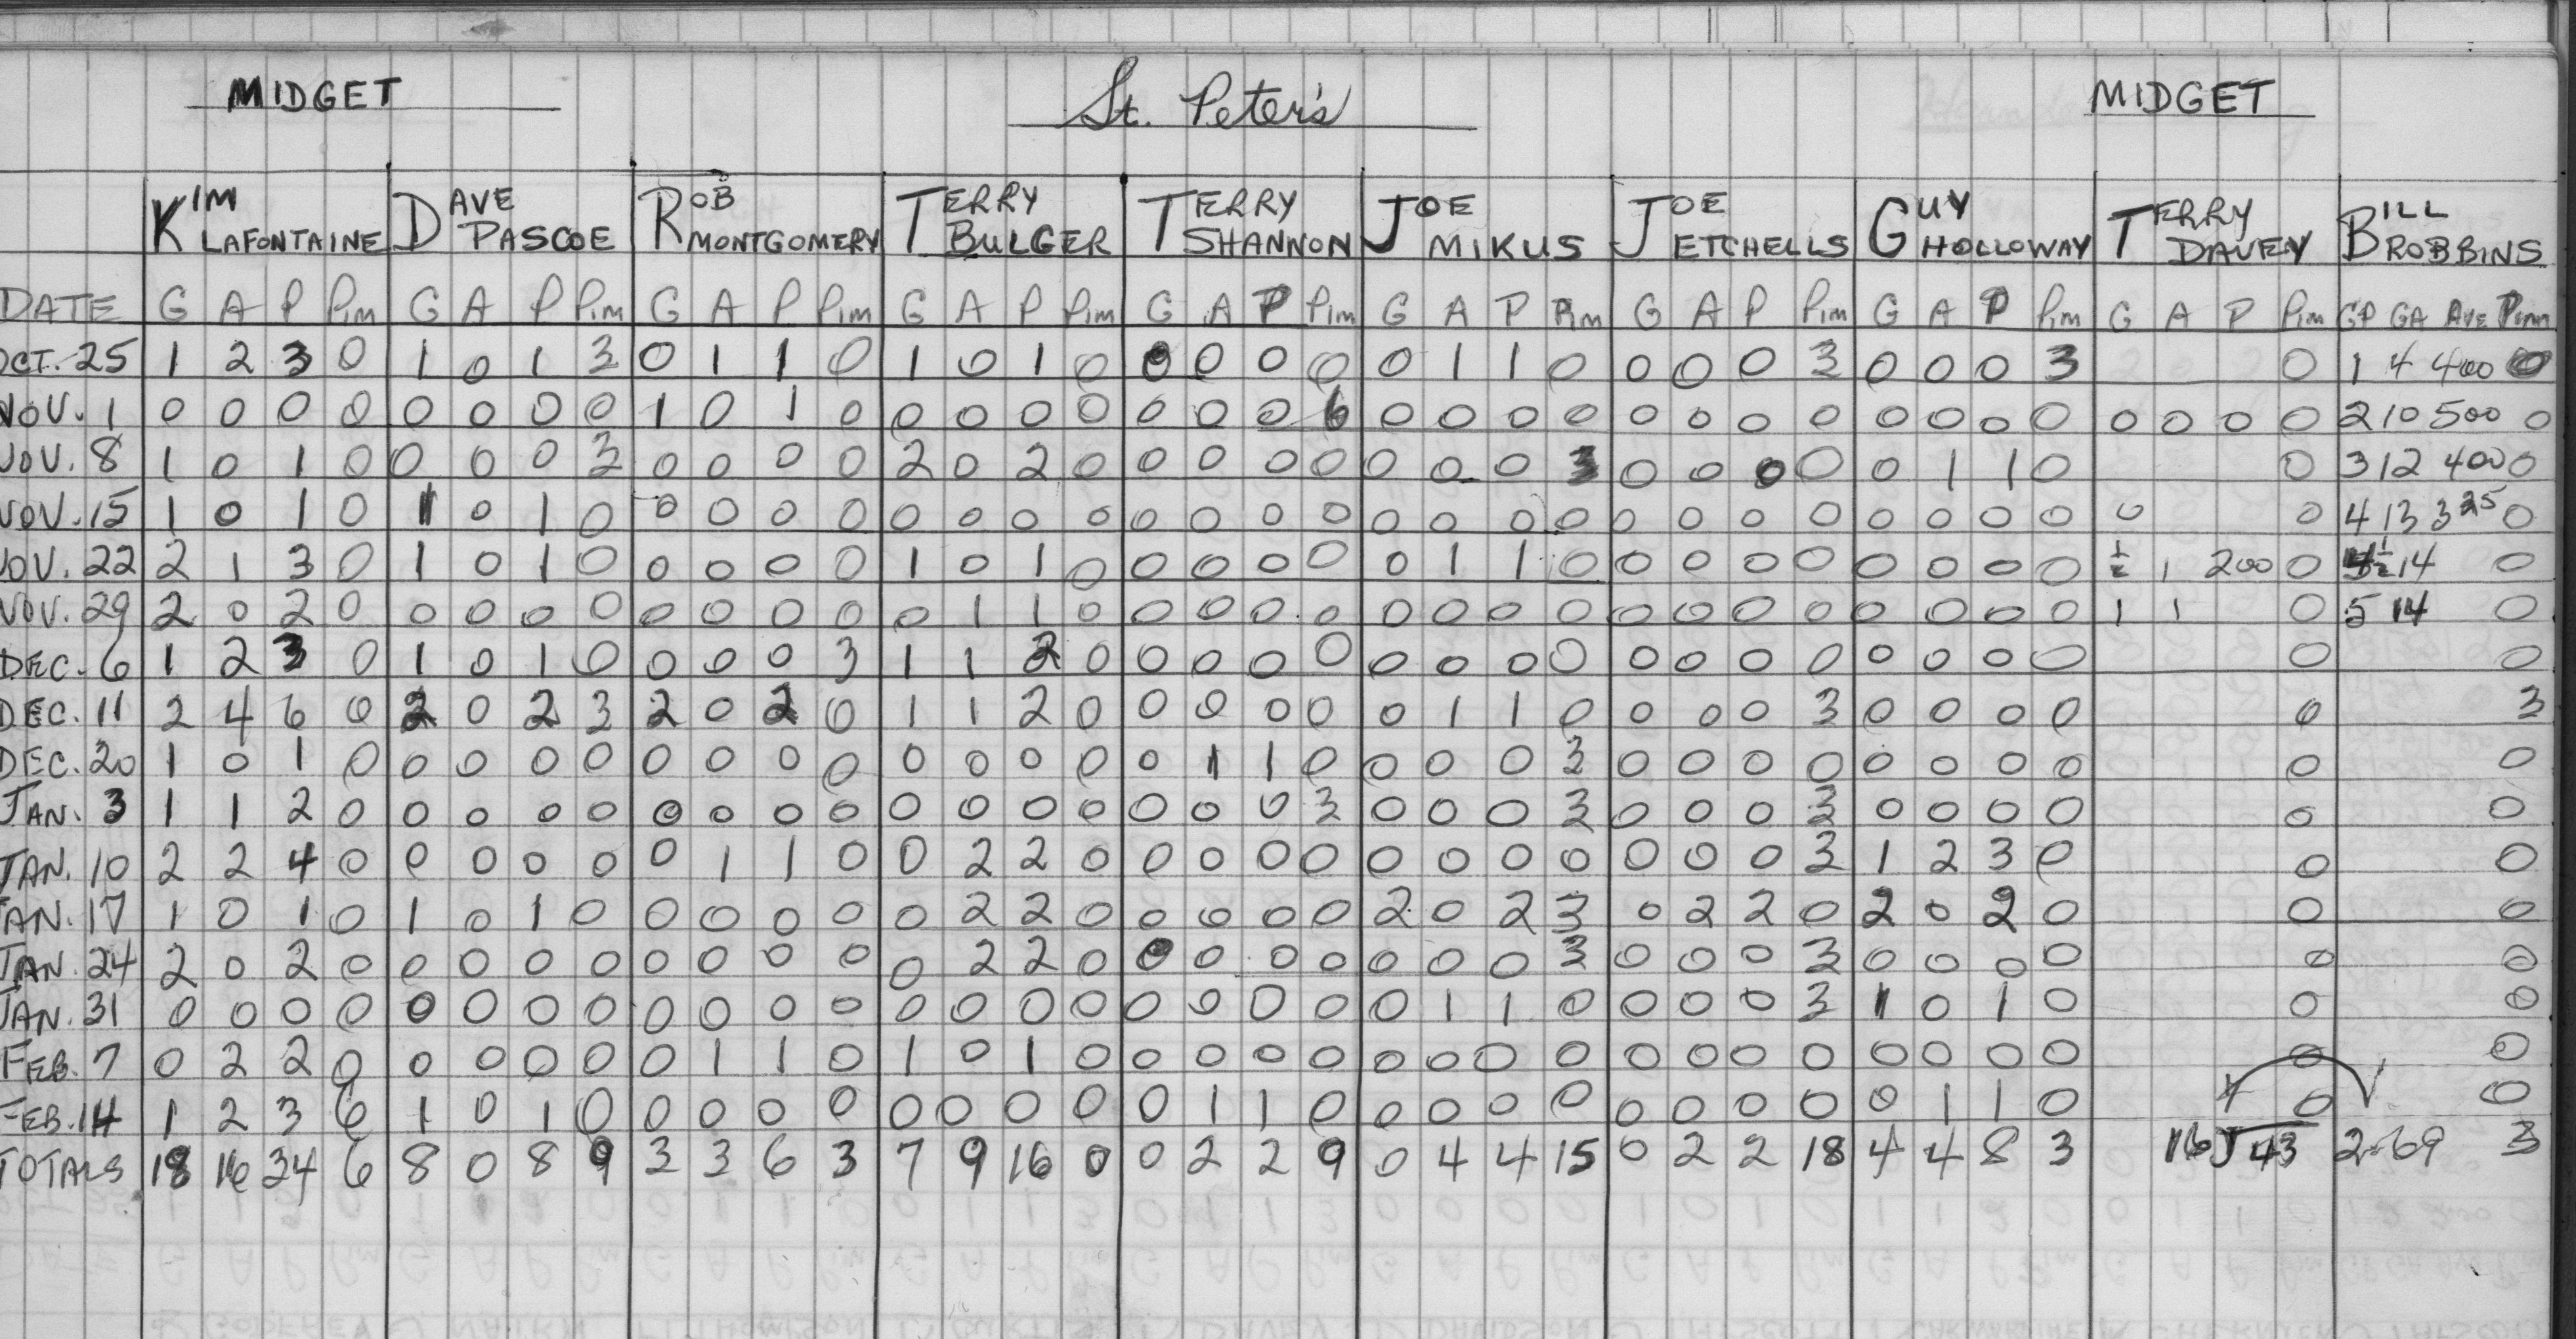 MIDGET St. Peter's MIDGET
KIM DAVE ROB TERRY TERRY JOE JOE GUY TERRY BILL
LAFONTAINE PASCOE MONTGOMERY BULGER SHANNON MIKUS ETCHELLS HOLLOWAY DAVEY ROBBINS
DATE G A P Pim G A P Pim G A P Pim G A P Pim G A P Pim G A P Pim G A P Pim G A P Pim G A P Pim GP GA AVE Pim
OCT. 25 1 2 3 0 1 0 1 3 0 1 1 0 1 0 1 0 0 0 0 0 0 1 1 0 0 0 0 3 0 0 0 3 0 1 4 400 0
NOV. 1 0 0 0 0 0 0 0 0 1 0 1 0 0 0 0 0 0 0 0 6 0 0 0 0 0 0 0 0 0 0 0 0 0 0 0 0 2 10 500 0
NOV. 8 1 0 1 0 0 0 0 3 0 0 0 0 2 0 2 0 0 0 0 0 0 0 0 3 0 0 0 0 0 1 1 0 0 3 12 400 0
NOV. 15 1 0 1 0 1 0 1 0 0 0 0 0 0 0 0 0 0 0 0 0 0 0 0 0 0 0 0 0 0 0 0 0 0 0 4 13 3 25 0
NOV. 22 2 1 3 0 1 0 1 0 0 0 0 0 1 0 1 0 0 0 0 0 0 1 1 0 0 0 0 0 0 0 0 0 1/2 1 200 0 4 1/2 14 0
NOV. 29 2 0 2 0 0 0 0 0 0 0 0 0 0 1 1 0 0 0 0 0 0 0 0 0 0 0 0 0 0 0 0 0 1 1 0 5 14 0
DEC. 6 1 2 3 0 1 0 1 0 0 0 0 3 1 1 2 0 0 0 0 0 0 0 0 0 0 0 0 0 0 0 0 0 0 0
DEC. 11 2 4 6 0 2 0 2 3 2 0 2 0 1 1 2 0 0 0 0 0 0 1 1 0 0 0 0 3 0 0 0 0 0 3
DEC. 20 1 0 1 0 0 0 0 0 0 0 0 0 0 0 0 0 0 1 1 0 0 0 0 3 0 0 0 0 0 0 0 0 0 0
JAN. 3 1 1 2 0 0 0 0 0 0 0 0 0 0 0 0 0 0 0 0 3 0 0 0 3 0 0 0 3 0 0 0 0 0 0
JAN. 10 2 2 4 0 0 0 0 0 0 1 1 0 0 2 2 0 0 0 0 0 0 0 0 0 0 0 0 3 1 2 3 0 0 0
JAN. 17 1 0 1 0 1 0 1 0 0 0 0 0 0 2 2 0 0 0 0 0 2 0 2 3 0 2 2 0 2 0 2 0 0 0
JAN. 24 2 0 2 0 0 0 0 0 0 0 0 0 0 2 2 0 0 0 0 0 0 0 0 3 0 0 0 3 0 0 0 0 0 0
JAN. 31 0 0 0 0 0 0 0 0 0 0 0 0 0 0 0 0 0 0 0 0 0 1 1 0 0 0 0 3 1 0 1 0 0 0
FEB. 7 0 2 2 0 0 0 0 0 0 1 1 0 1 0 1 0 0 0 0 0 0 0 0 0 0 0 0 0 0 0 0 0 0 0
FEB. 14 1 2 3 6 1 0 1 0 0 0 0 0 0 0 0 0 0 1 1 0 0 0 0 0 0 0 0 0 0 1 1 0 0 0
TOTALS 18 16 34 6 8 0 8 9 3 3 6 3 7 9 16 0 0 2 2 9 0 4 4 15 0 2 2 18 4 4 8 3 16 43 2.69 3